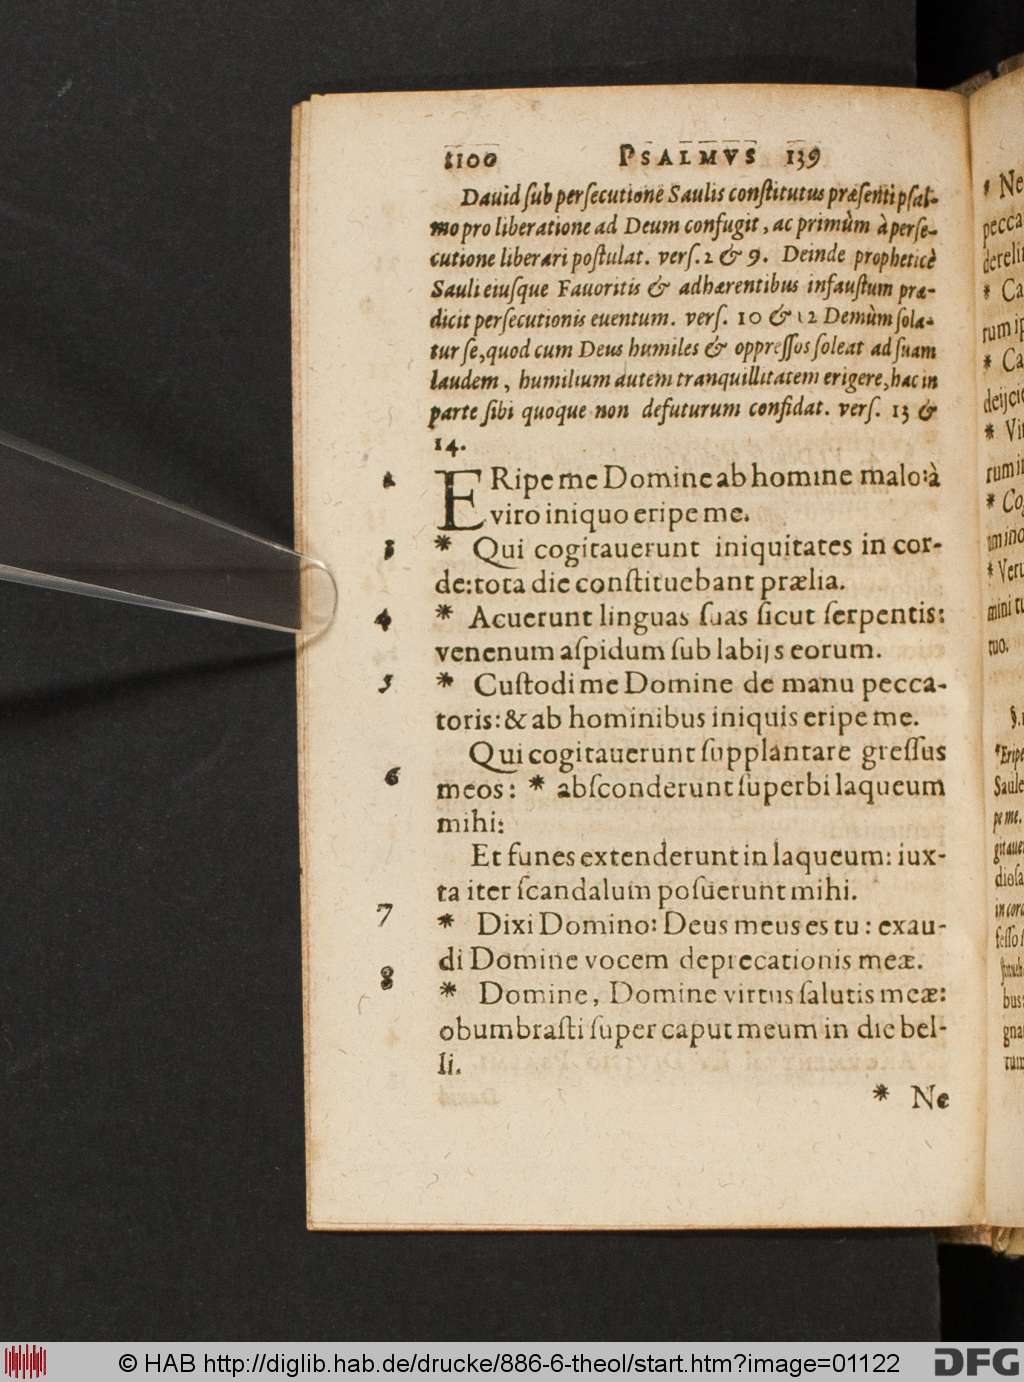 1100 PSALMVS 139
Dauid sub persecutione Saulis constitutus præsenti psal-
mo pro liberatione ad Deum confugit, ac primùm à perse-
cutione liberari postulat. vers. 2 & 9. Deinde propheticè
Sauli eiusque Fauoritis & adhærentibus infaustum præ-
dicit persecutionis euentum. vers. 10 & 12 Demùm sola-
tur se, quod cum Deus humiles & oppressos soleat ad suam
laudem, humilium autem tranquillitatem erigere, hac in
parte sibi quoque non defuturum confidat. vers. 13 &
14.
2 ERipe me Domine ab homine malo: à
viro iniquo eripe me.
3 * Qui cogitauerunt iniquitates in cor-
de: tota die constituebant prælia.
4 * Acuerunt linguas suas sicut serpentis:
venenum aspidum sub labijs eorum.
5 * Custodi me Domine de manu pecca-
toris: & ab hominibus iniquis eripe me.
Qui cogitauerunt supplantare gressus
6 meos: * absconderunt superbi laqueum
mihi:
Et funes extenderunt in laqueum: iux-
ta iter scandalum posuerunt mihi.
7 * Dixi Domino: Deus meus es tu: exau-
di Domine vocem deprecationis meæ.
8 * Domine, Domine virtus salutis meæ:
obumbrasti super caput meum in die bel-
li.
* Ne
* Ne
pecca
* Ca
rum ip
* Ca
* Vi
rum in
tuo.
Saule
pe me.
bus:
gna
© HAB http://diglib.hab.de/drucke/886-6-theol/start.htm?image=01122
DFG